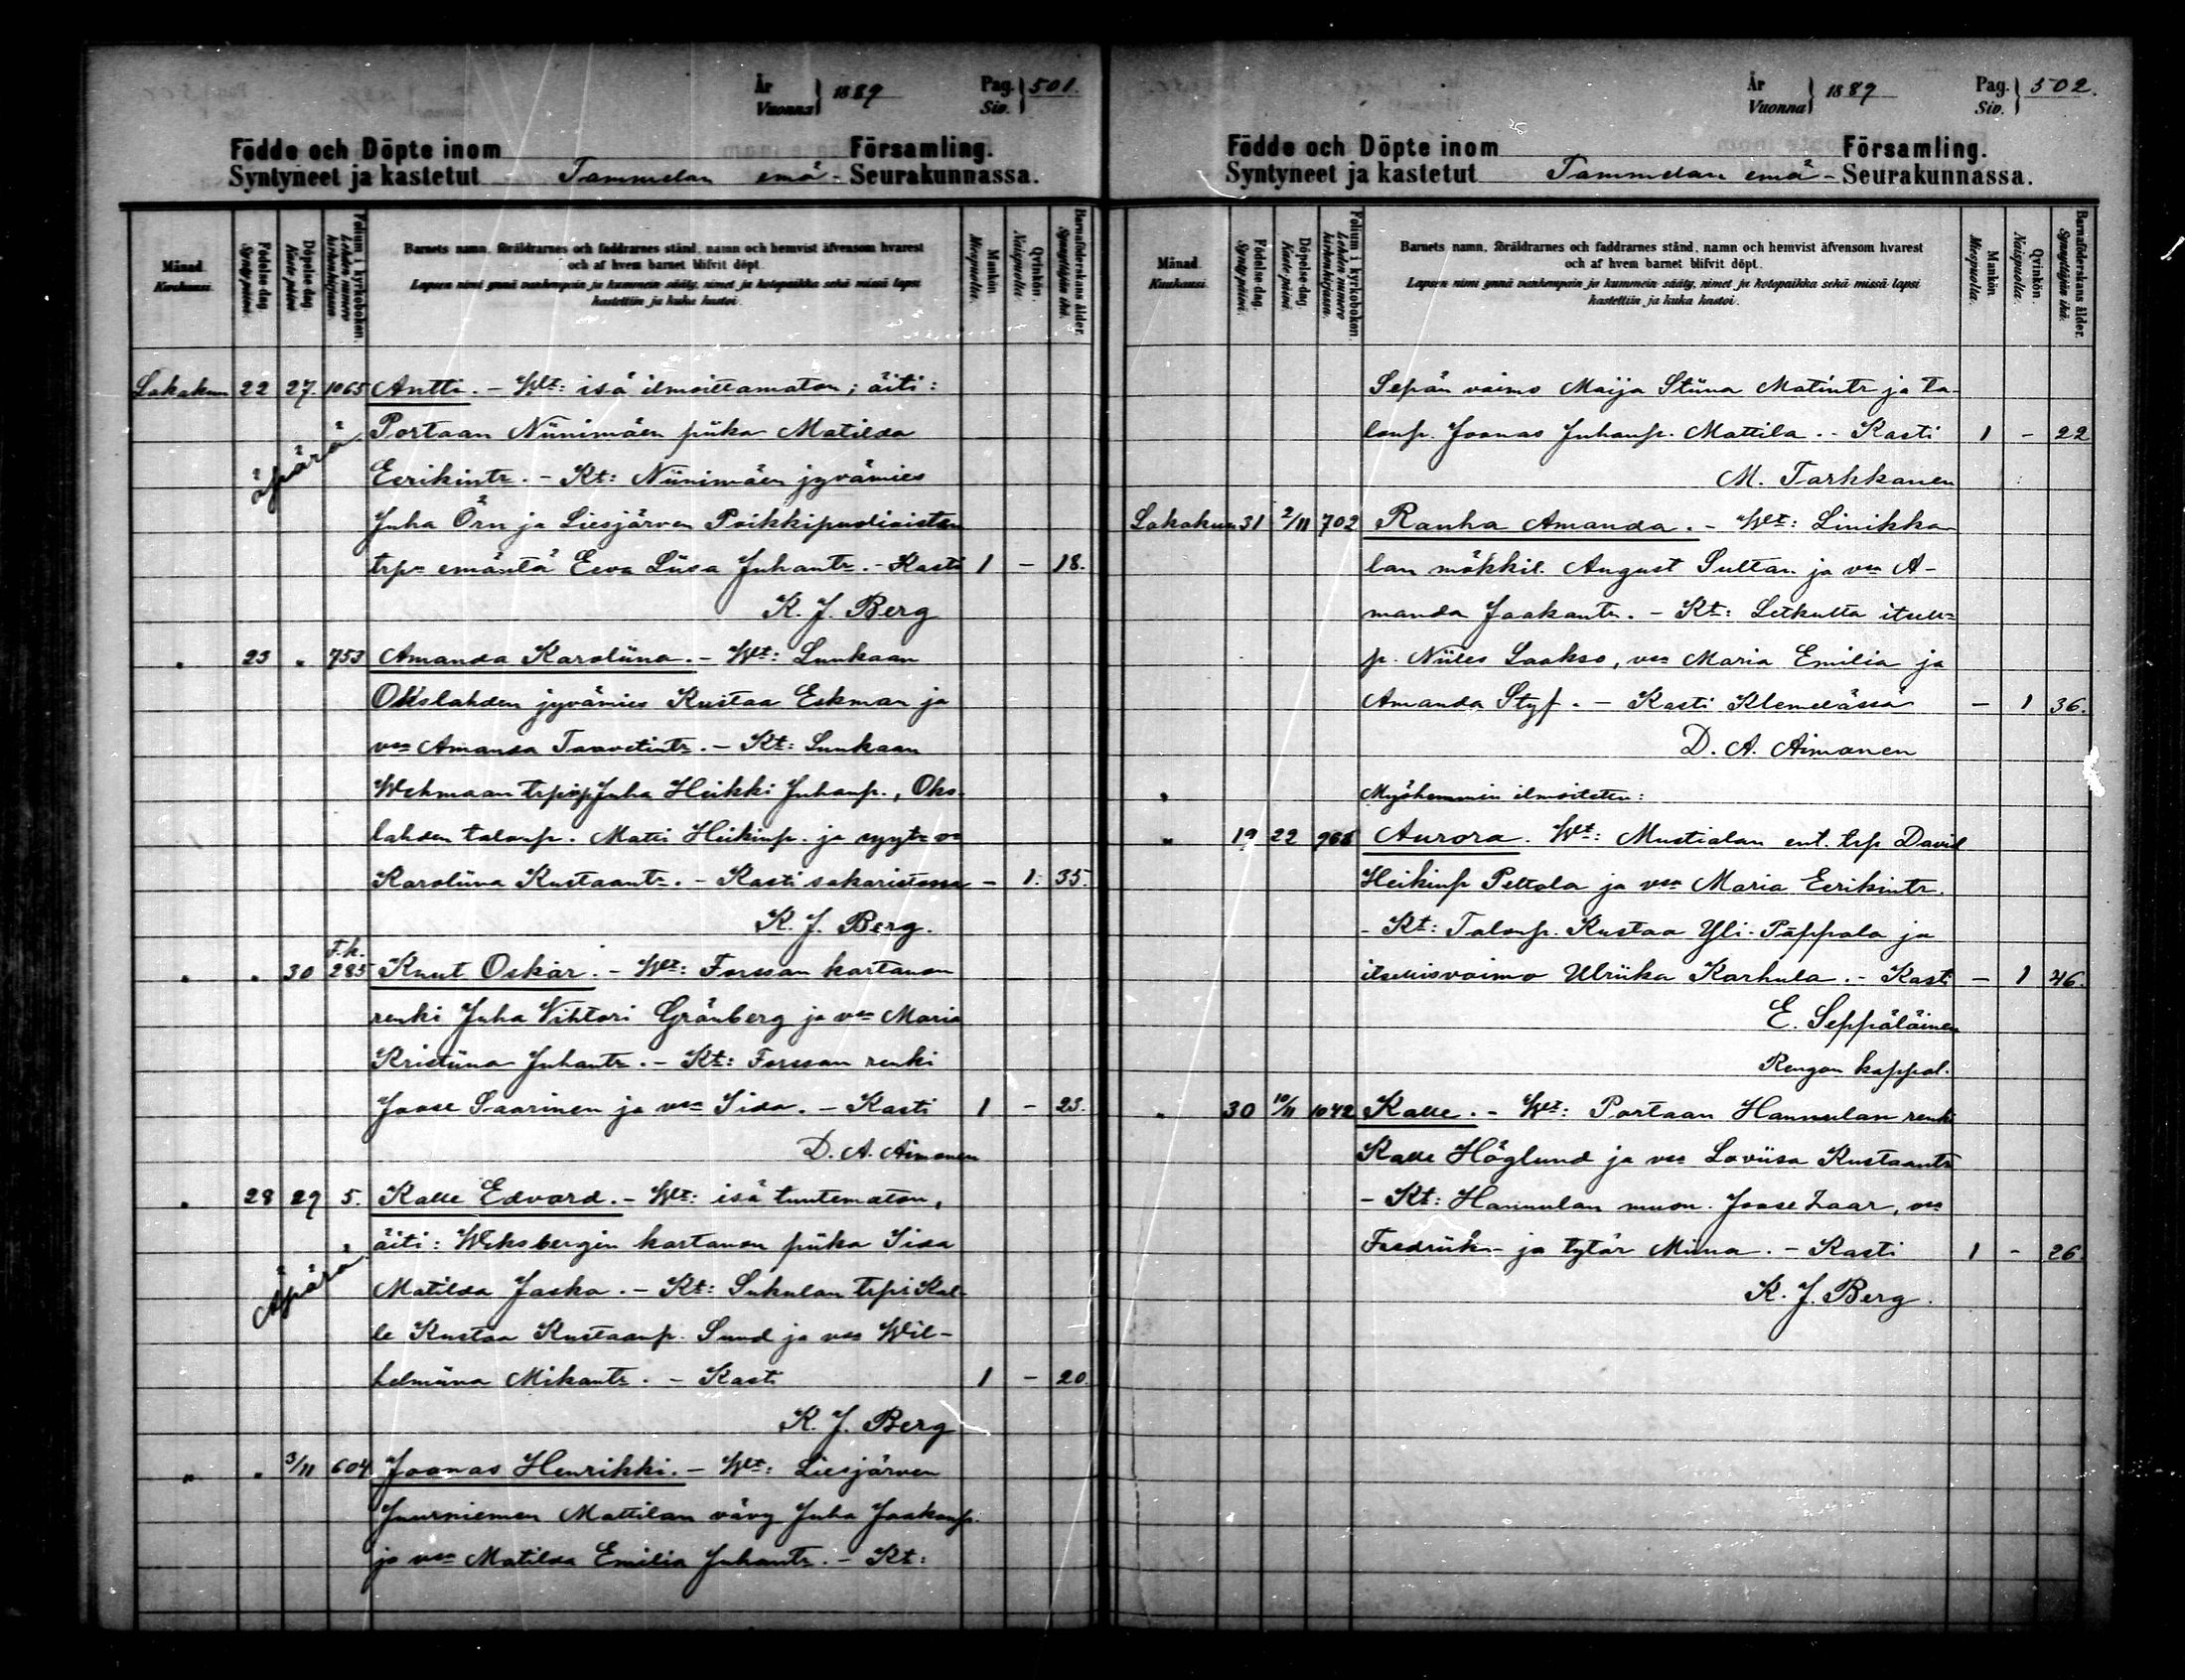 År
Vuonna } 1889
Pag.
Siv. } 501.
Födde och Döpte inom Församling.
Syntyneet ja kastetut Tammelan emä- Seurakunnassa.
Månad. Kuukausi.
Födelse-dag. Syntypäivä.
Döpelse-dag. Kaste päivä
Folium i kyrkoboken. Lehden numero kirkonkirjassa.
Barnets namn, föräldrarnes och faddrarnes stånd, namn och hemvist äfvensom hvarest
och af hvem barnet blifvit döpt.
Lapsen nimi ynnä vanhempain ja kummein sääty, nimet ja kotopaikka sekä missä lapsi
kastettiin ja kuka kastoi.
Mankön Miespuolta.
Qvinkön. Naispuolta.
Barnaföderskans ålder. Synnyttäjän ikä.
Lokakuu 22 27. 1065 Antti. - Wt: isä ilmoittamaton; äiti:
Portaan Niinimäen piika Matilda
äpärä Eerikintr. - Kt: Niinimäen jyvämies
Juha Örn ja Liesjärven Poikkipuoliaisten
trpn emäntä Eeva Liisa Juhantr. - Kasti 1 - 18.
K. J. Berg
" 23 " 753 Amanda Karoliina. - Wt: Lunkaan
Okslahden jyvämies Kustaa Eskman ja
vmo Amanda Taavetintr. - Kt: Lunkaan
Wehmaan Juha Heikki Juhanp., Oks-
lahden talonp. Matti Heikinp. ja
Karoliina Kustaantr. - Kasti sakaristossa - 1. 35.
K. J. Berg.
" " 30 F.k. 285 Knut Oskar. - Wt: Forssan kartanon
renki Juha Vihtori Grönberg ja vmo Maria
Kristiina Juhantr. - Kt: Forssan renki
Joose Saarinen ja vmo Iida. - Kasti 1 - 23.
D. A. Aimonen
" 28 29 5. Kalle Edvard. - Wt: isä tuntematon,
äiti: Wiksbergin kartanon piika Iida
Äpärä Matilda Jaska. - Kt: Sukulan trpi Kal-
le Kustaa Kustaanp. Sund ja vmo Wil-
helmiina Mikantr. - Kasti 1 - 20.
K. J. Berg
" " 3/11 604 Joonas Henrikki. - Wt: Liesjärven
Juurniemen Mattilan vävy Juha Jaakonp.
ja vmo Matilda Emilia Juhantr. - Kt:
År
Vuonna } 1889
Pag.
Siv. } 502.
Födde och Döpte inom Församling.
Syntyneet ja kastetut Tammelan emä- Seurakunnassa.
Månad. Kuukausi.
Födelse-dag. Synty päivä.
Döpelse-dag. Kaste päivä.
Folium i kyrkoboken. Lehden numero kirkonkirjassa.
Barnets namn, föräldrarnes och faddrarnes stånd, namn och hemvist äfvensom hvarest
och af hvem barnet blifvit döpt.
Lapsen nimi ynnä vanhempain ja kummein sääty, nimet ja kotopaikka sekä missä lapsi
kastettiin ja kuka kastoi.
Mankön Miespuolta.
Qvinkön. Naispuolta.
Barnaföderskans ålder. Synnyttäjän ikä.
Sepän vaimo Maija Stiina Matintr ja ta-
lonp. Joonas Juhanp. Mattila. - Kasti 1 - 22
M. Tarkkanen
Lokakuu 31 2/11 702 Rauha Amanda. - Wt: Linikka-
lan mökkil. August Sultan ja vmo A-
manda Jaakantr. - Kt: Letkulta itsell-
p. Niiles Laakso, vmo Maria Emilia ja
Amanda Styf. - Kasti Klemelässä - 1 36.
D. A. Aimonen
" Myöhemmin ilmoitetut:
" 19 22 968 Aurora. Wt: Mustialan ent. trp David
Heikinp Peltola ja vmo Maria Eerikintr.
- Kt: Talonp. Kustaa Yli-Pappala ja
itsellisvaimo Ulriika Karhula. - Kasti - 1 46.
E. Seppäläinen
Rengon kappal.
" 30 10/11 1042 Kalle. - Wt: Portaan Hannulan renki
Kalle Höglund ja vmo Loviisa Kustaantr
- Kt: Hannulan muon. Joose Zaar, vmo
Fredriika ja tytär Miina. - Kasti 1 - 26.
K. J. Berg.